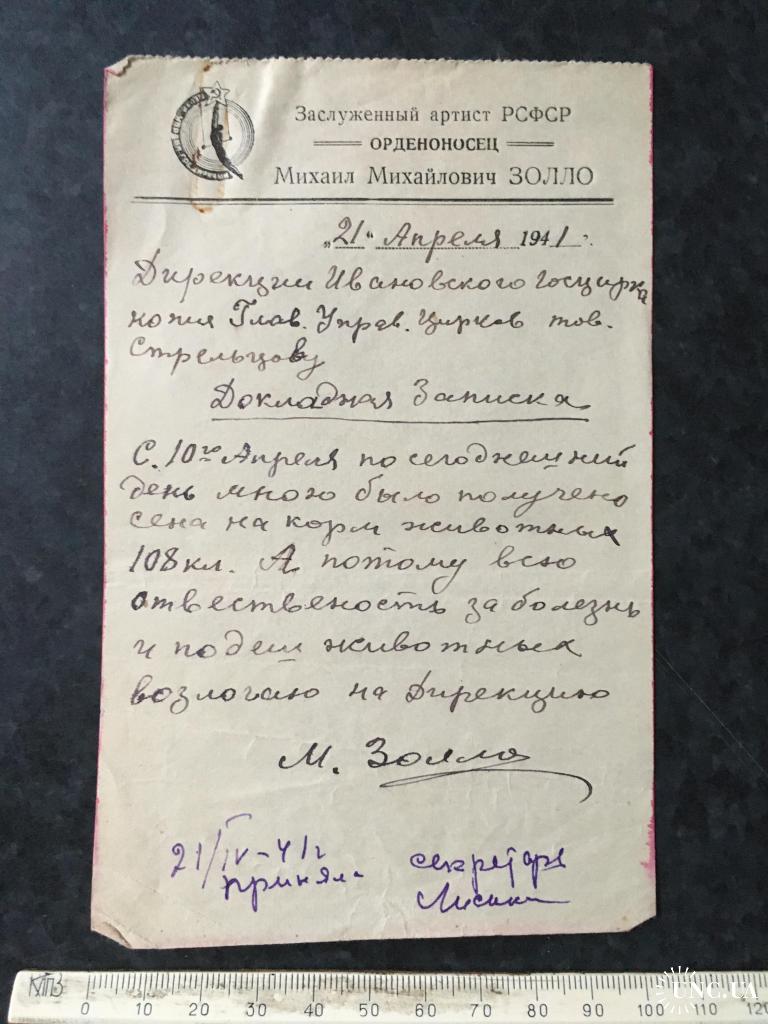 Заслуженный артист РСФСР
ОРДЕНОНОСЕЦ
Михаил Михайлович ЗОЛЛО
„21“ Апреля 1941 г.
Дирекции Ивановского Госцирка
копия Глав. Управ. Цирков тов.
Стрельцову
Докладная Записка
С. 10го Апреля по сегоднешний
день мною было получено
сена на корм животных
108 кл. А потому всю
отвественость за болезнь
и подеш животных
возлогаю на Дирекцию
М. Золло
21/IV-41г
приняла
секретарь
КПЗ 0 10 20 30 40 50 60 70 80 90 100 110 120
UNC.UA